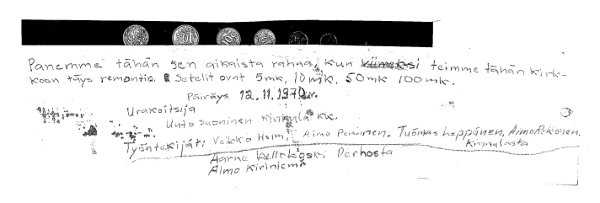 Panemme tähän sen aikaista rahaa, kun viimeksi teimme tähän kirk-
koon täys remontia. Setelit ovat 5mk, 10mk, 50mk 100mk.
Päiväys 12.11.1970v.
Urakoitsija
Unto Suoninen kk.
Työntekijät: Veikko Holm, Aimo Tuomas Leppänen, Aimo Pekonen.
Aarne Perhosta
Aimo Kiriniemi